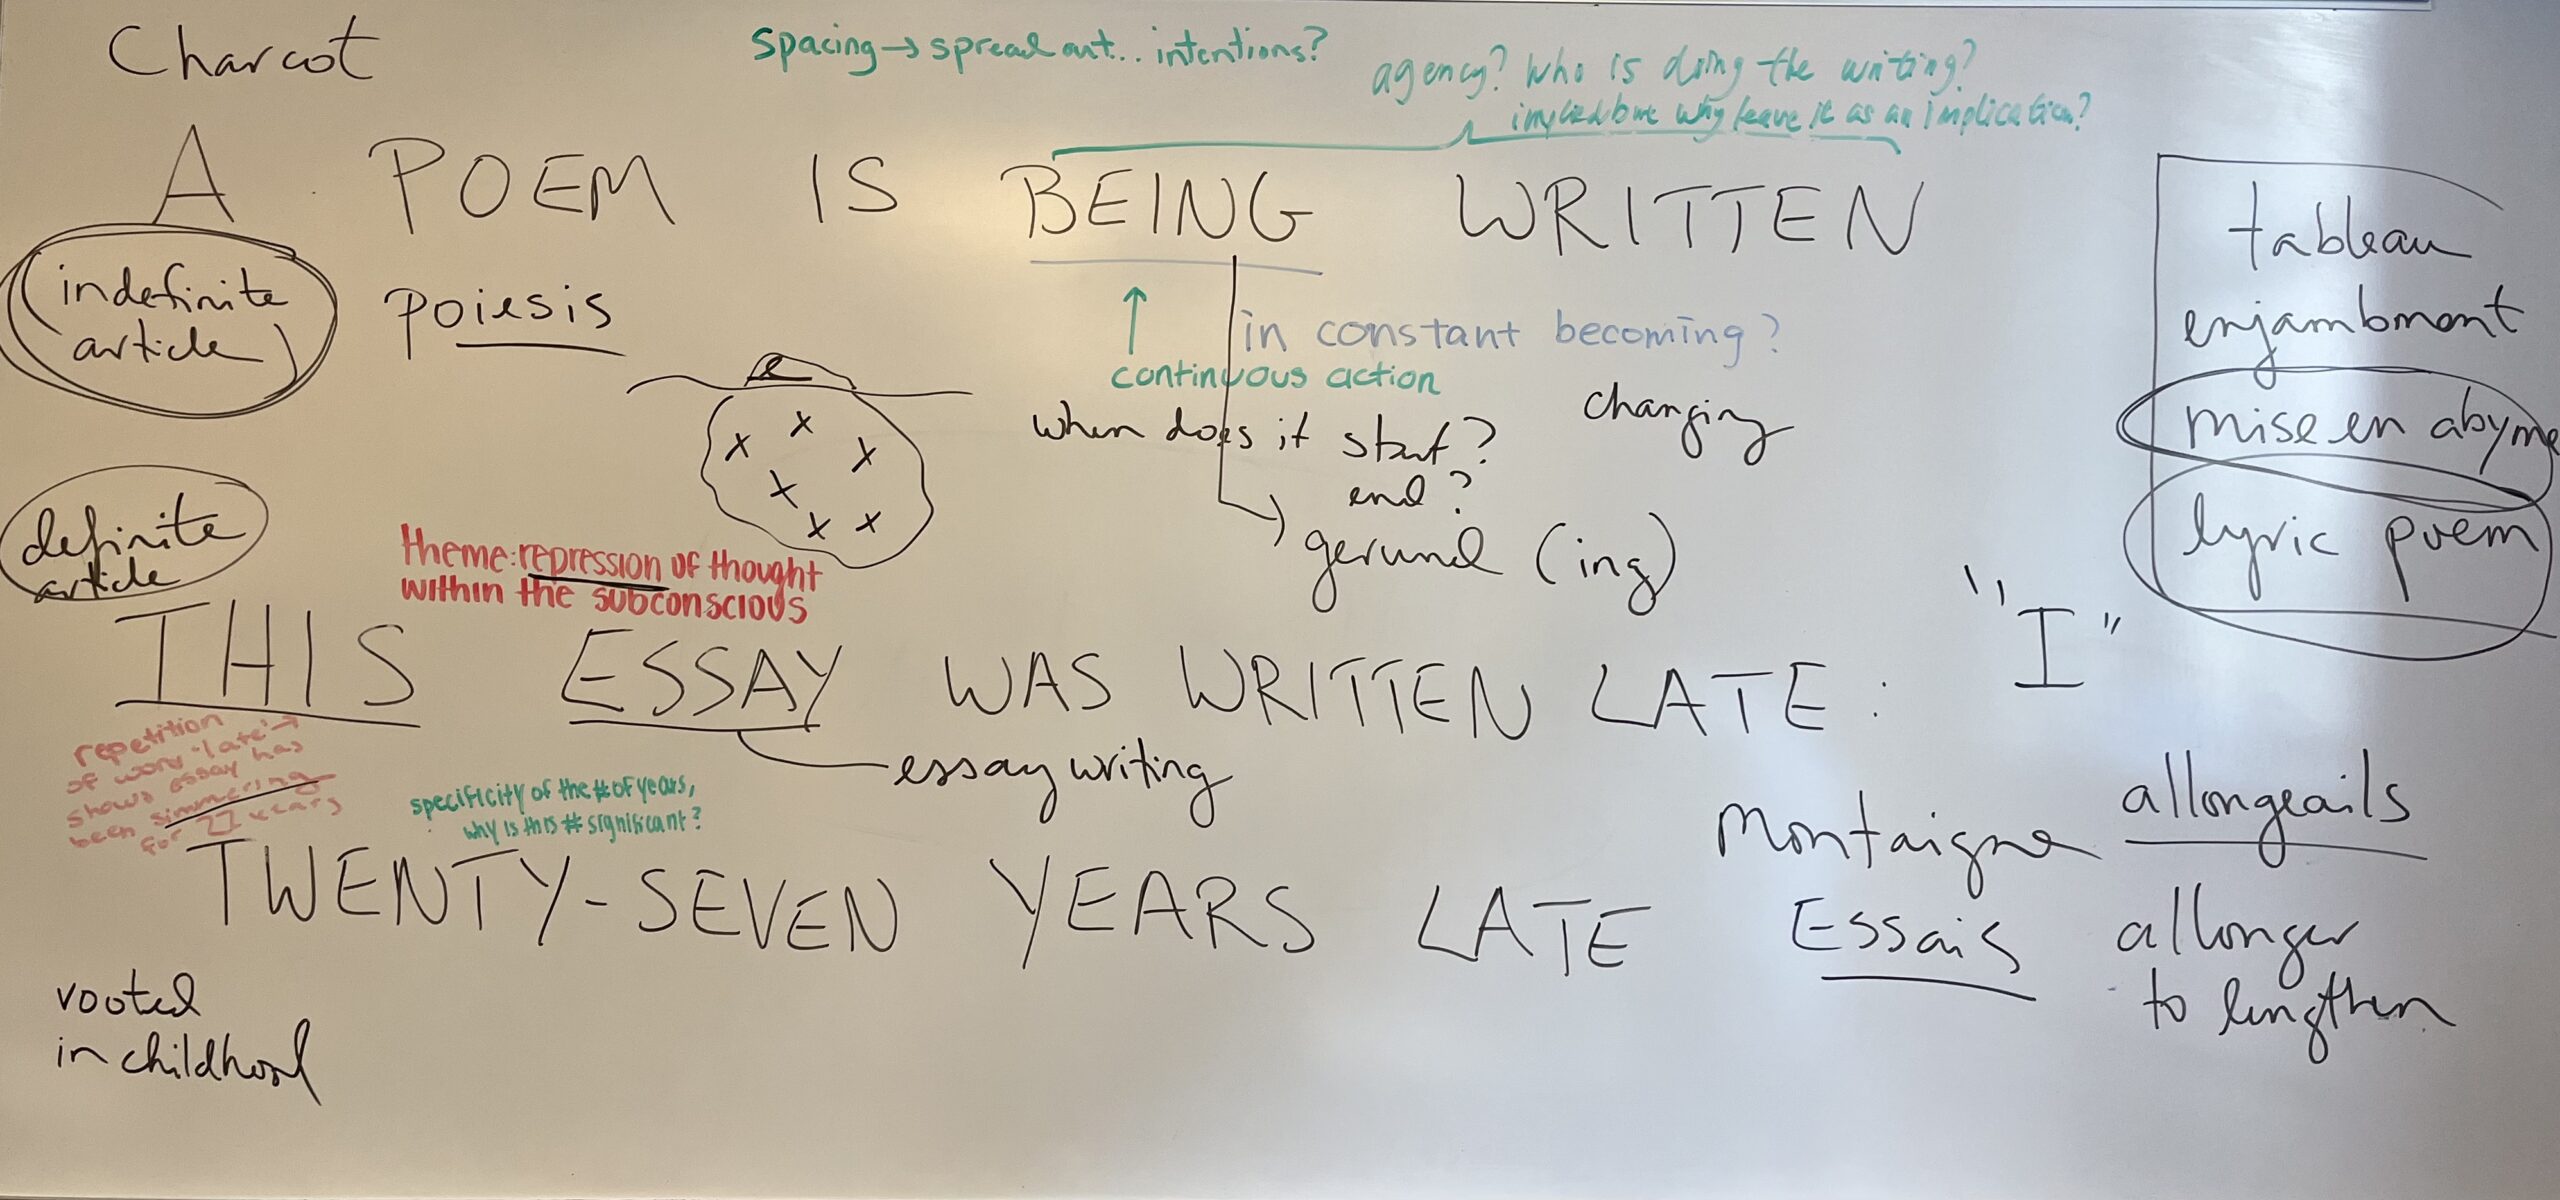 Charcot
spacing → spread out... intentions?
agency? Who is doing the writing?
implied but why leave it as an implication?
A POEM IS BEING WRITTEN
indefinite
article
poiesis
in constant becoming?
continuous action
changing
when does it start?
end?
gerund (ing)
tableau
enjambment
mise en abyme
lyric poem
definite
article
theme: repression of thought
within the subconscious
"I"
THIS ESSAY WAS WRITTEN LATE:
essay writing
repetition
of word 'late' →
shows essay has
been simmering
for 27 years
specificity of the # of years,
why is this # significant?
TWENTY-SEVEN YEARS LATE
Montaigne
Essais
allongeails
allonger
to lengthen
rooted
in childhood